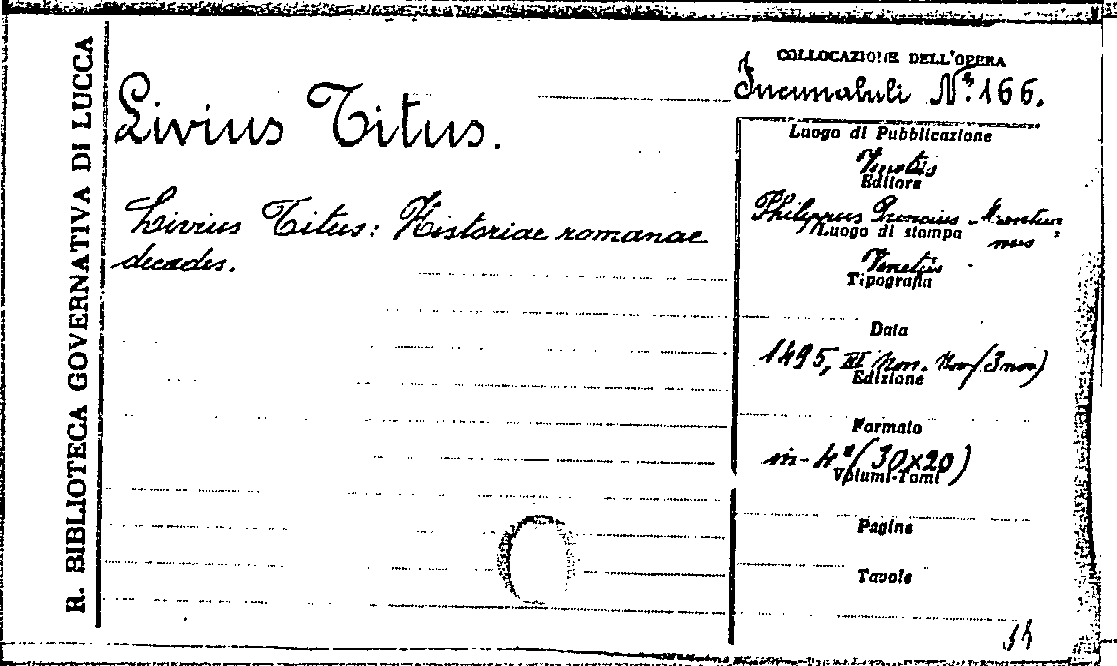 R. BIBLIOTECA GOVERNATIVA DI LUCCA
Livius Titus.
Livius Titus: Historiae romanae
decades.
COLLOCAZIONE DELL'OPERA
Incunabuli N.º 166.
Luogo di Pubblicazione
Venetiis
Editore
Philippus Pincius Mantua-
nus
Luogo di stampa
Venetiis
Tipografia
Data
1495, III Non. Nov (3 nov)
Edizione
Formato
in-4º (30x20)
Volumi-Tomi
Pagine
Tavole